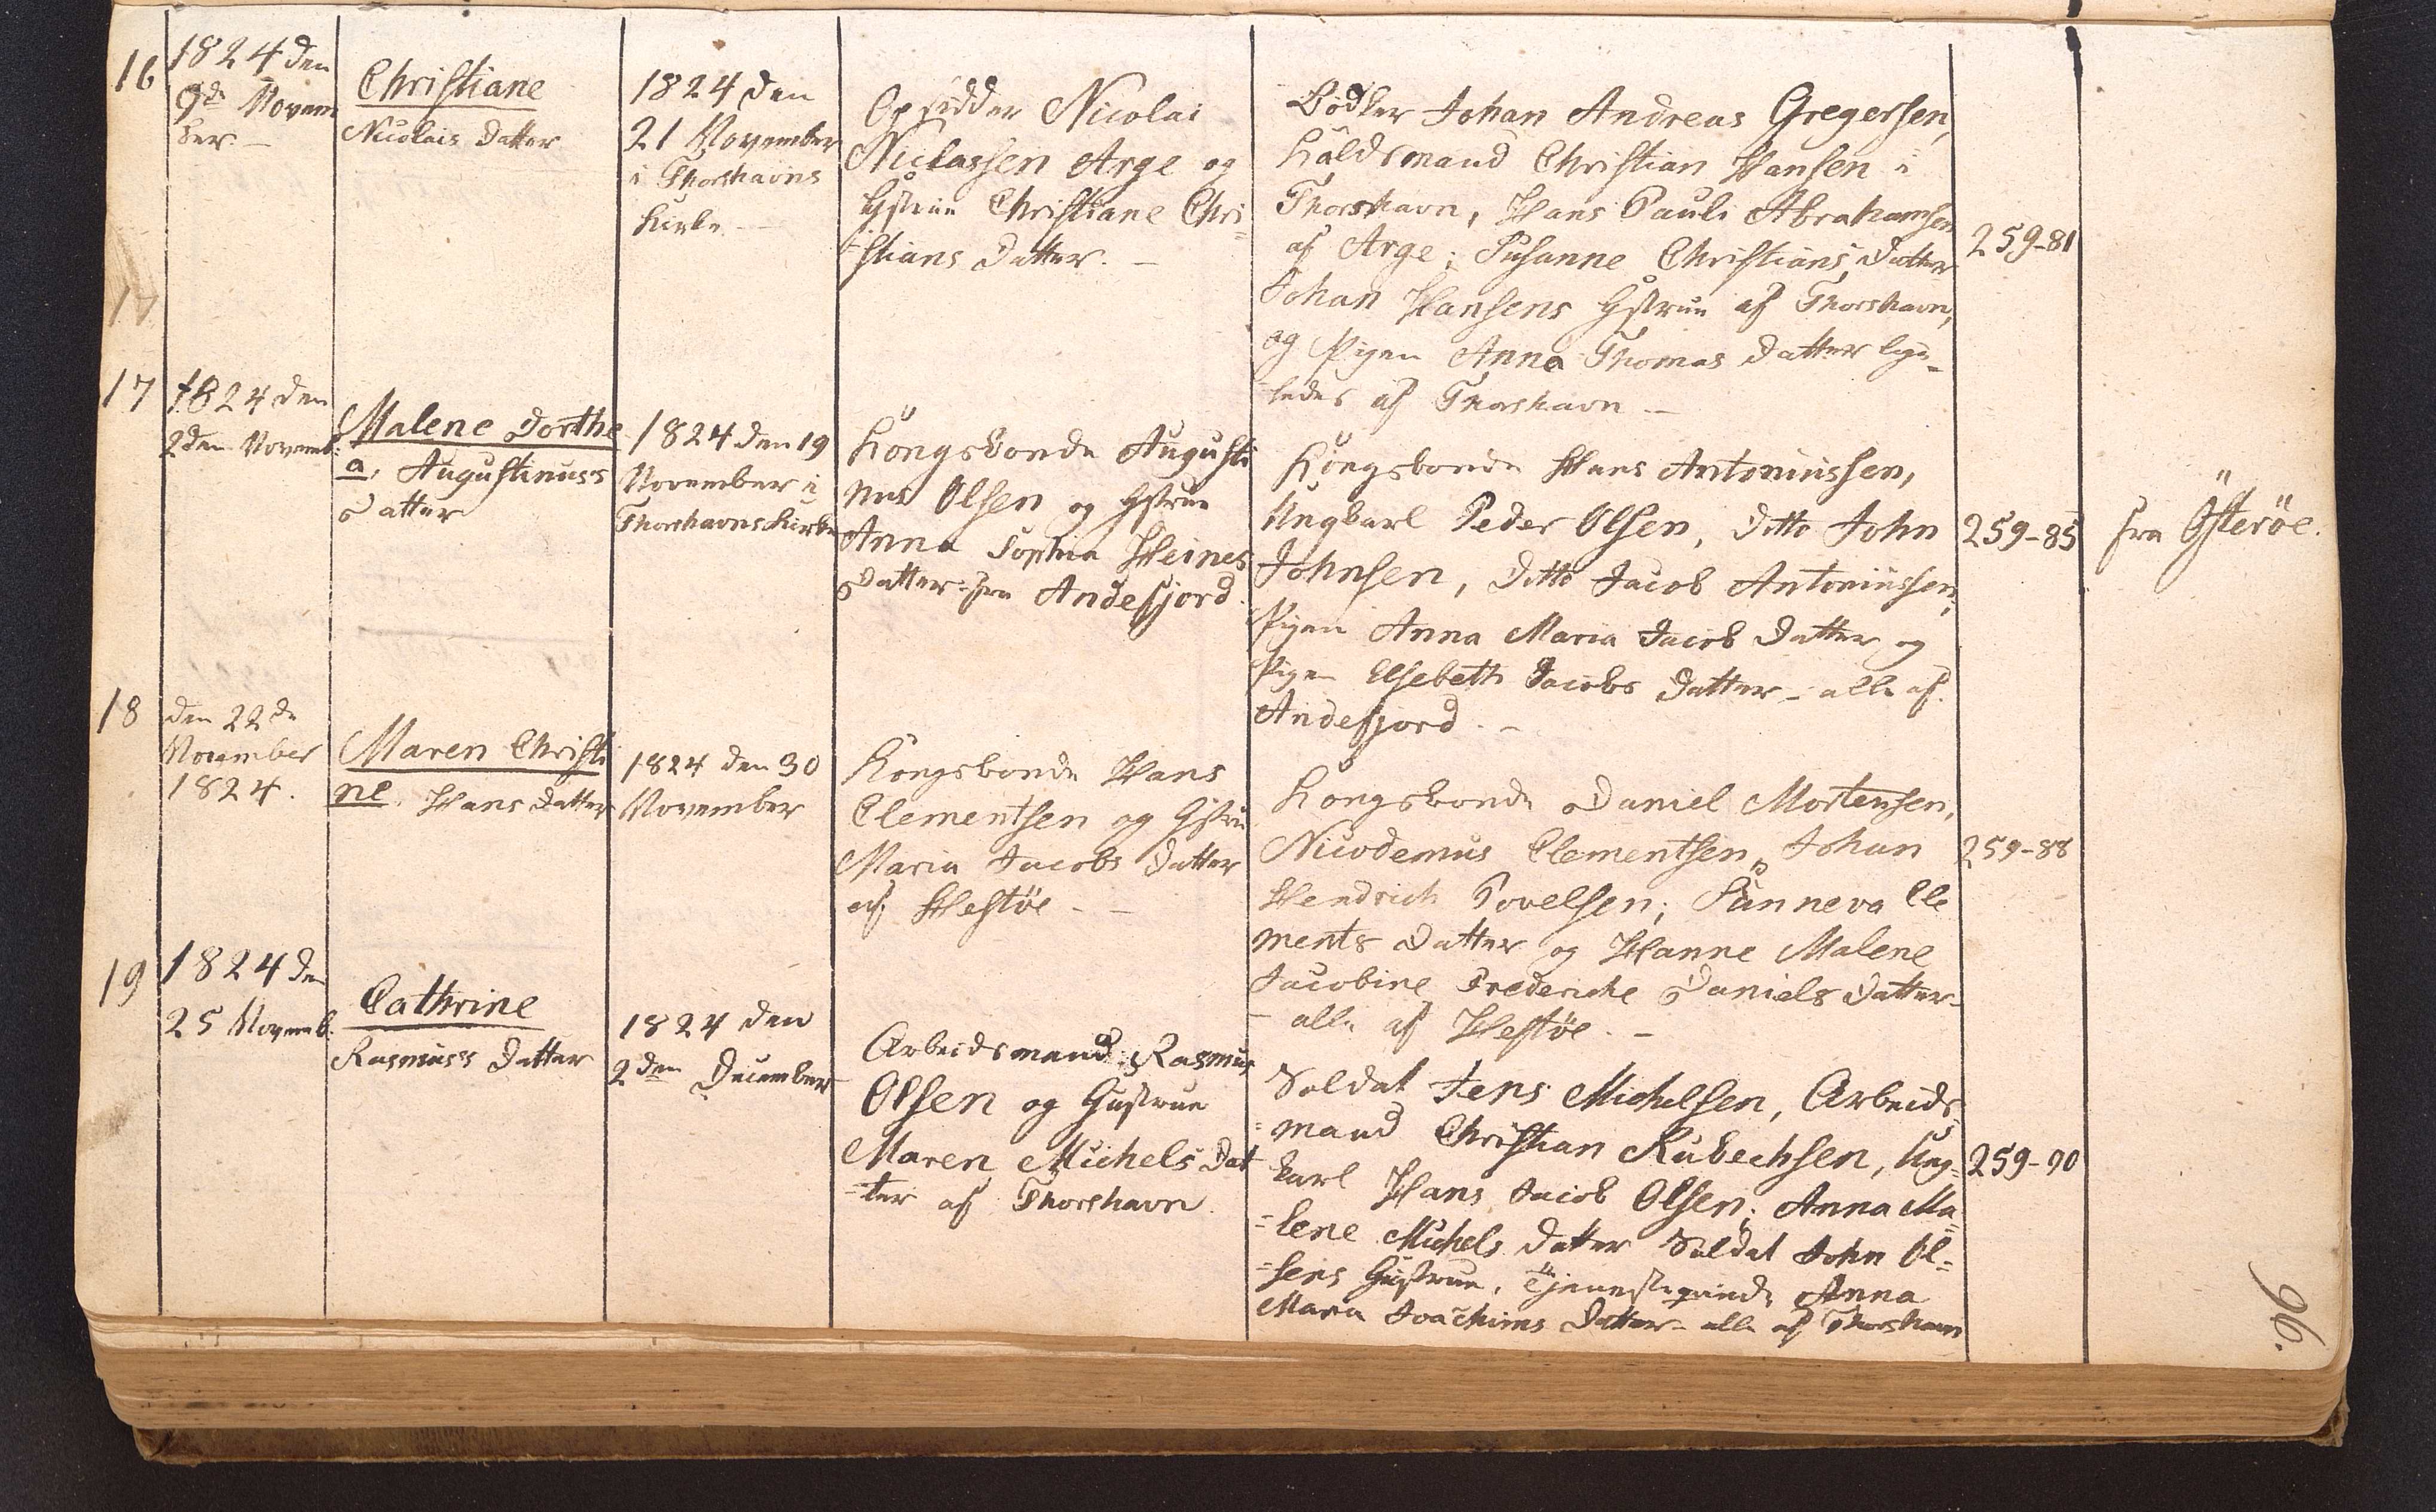 16
1824 den
9de Novem
ber. –
Christiane
Nicolais Datter
1824 den
21 November
i Thorshavns
Kirke. –
Opsidder Nicolai
Niclassen Arge og
Hustrue Christiane Chri=
=stians Datter. –
Bødker Johan Andreas Gregersen,
Huldsmand Christian Hansen i
Thorshavn, Hans Pauli Abrahamsen
af Arge; Susanne Christians Datter
Johan Hansens Hustrue af Thorshavn,
og Pigen Anna Thomas Datter lige=
=ledes af Thorshavn –
259-81
17
17
1824 den
2den Novemb.
Malene Dorthe
a, Augustinuss
Datter
1824 den 19
November i
Thorshavns Kirke
Kongsbonde Augusti
nus Olsen og Hustrue
Anna Sophia Heines
Datter fra Andefjord.
Kongsbonde Hans Antoniussen,
Ungkarl Peder Olsen, Ditto John
Johnsen, Ditto Jacob Antoniussen;
Pigen Anna Maria Jacob Datter og
Pigen Elsebeth Jacobs Datter – alle af
Andefjord. –
259-85
fra Østerøe.
18
den 22de
November
1824.
Maren Christi
ne, Hans Datter
1824 den 30
November
Kongsbonde Hans
Clementsen og Hustru
Maria Jacobs Datter
af Hestøe – –
Kongsbonde Daniel Mortensen,
Nicodemus Clementsen, Johan
Hendrich Povelsen; Sunneva Cle
ments Datter og Hanne Malene
Jacobine Frederiche Daniels Datter –
– alle af Hestøe. –
259-88
19
1824 den
25 Novemb.
Cathrine
Rasmuss Datter
1824 den
2den December
Arbeidsmand Rasmus
Olsen og Hustrue
Maren Michels Dat
=ter af Thorshavn.
Soldat Jens Michelsen, Arbeids
=mand Christian Rubechsen, Ung=
karl Hans Jacob Olsen; Anna Ma=
=lene Michels Datter Soldat John Ol=
=sens Hustrue, Tjenesteqvinde Anna
Maria Joachims Datter – alle af Thorshavn
259-90
96.